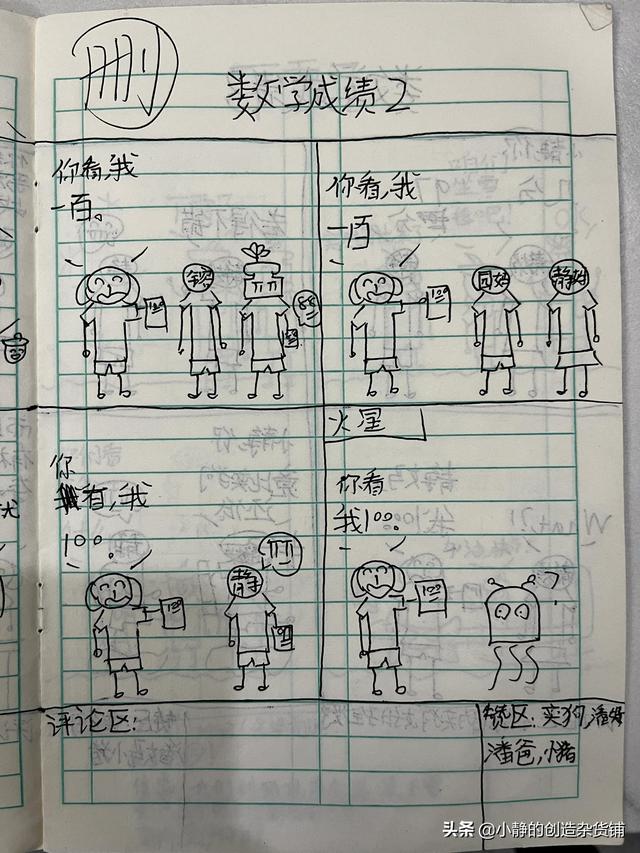 删
数学成绩2
你看,我
一百。
100
你看,我
一百
100
园妈
静妈
火星
你
看,我
100。
100
静
你看
我100。
100
评论区:
龙区:卖狗,潘妈
潘爸,小猪
头条 @小静的创造杂货铺